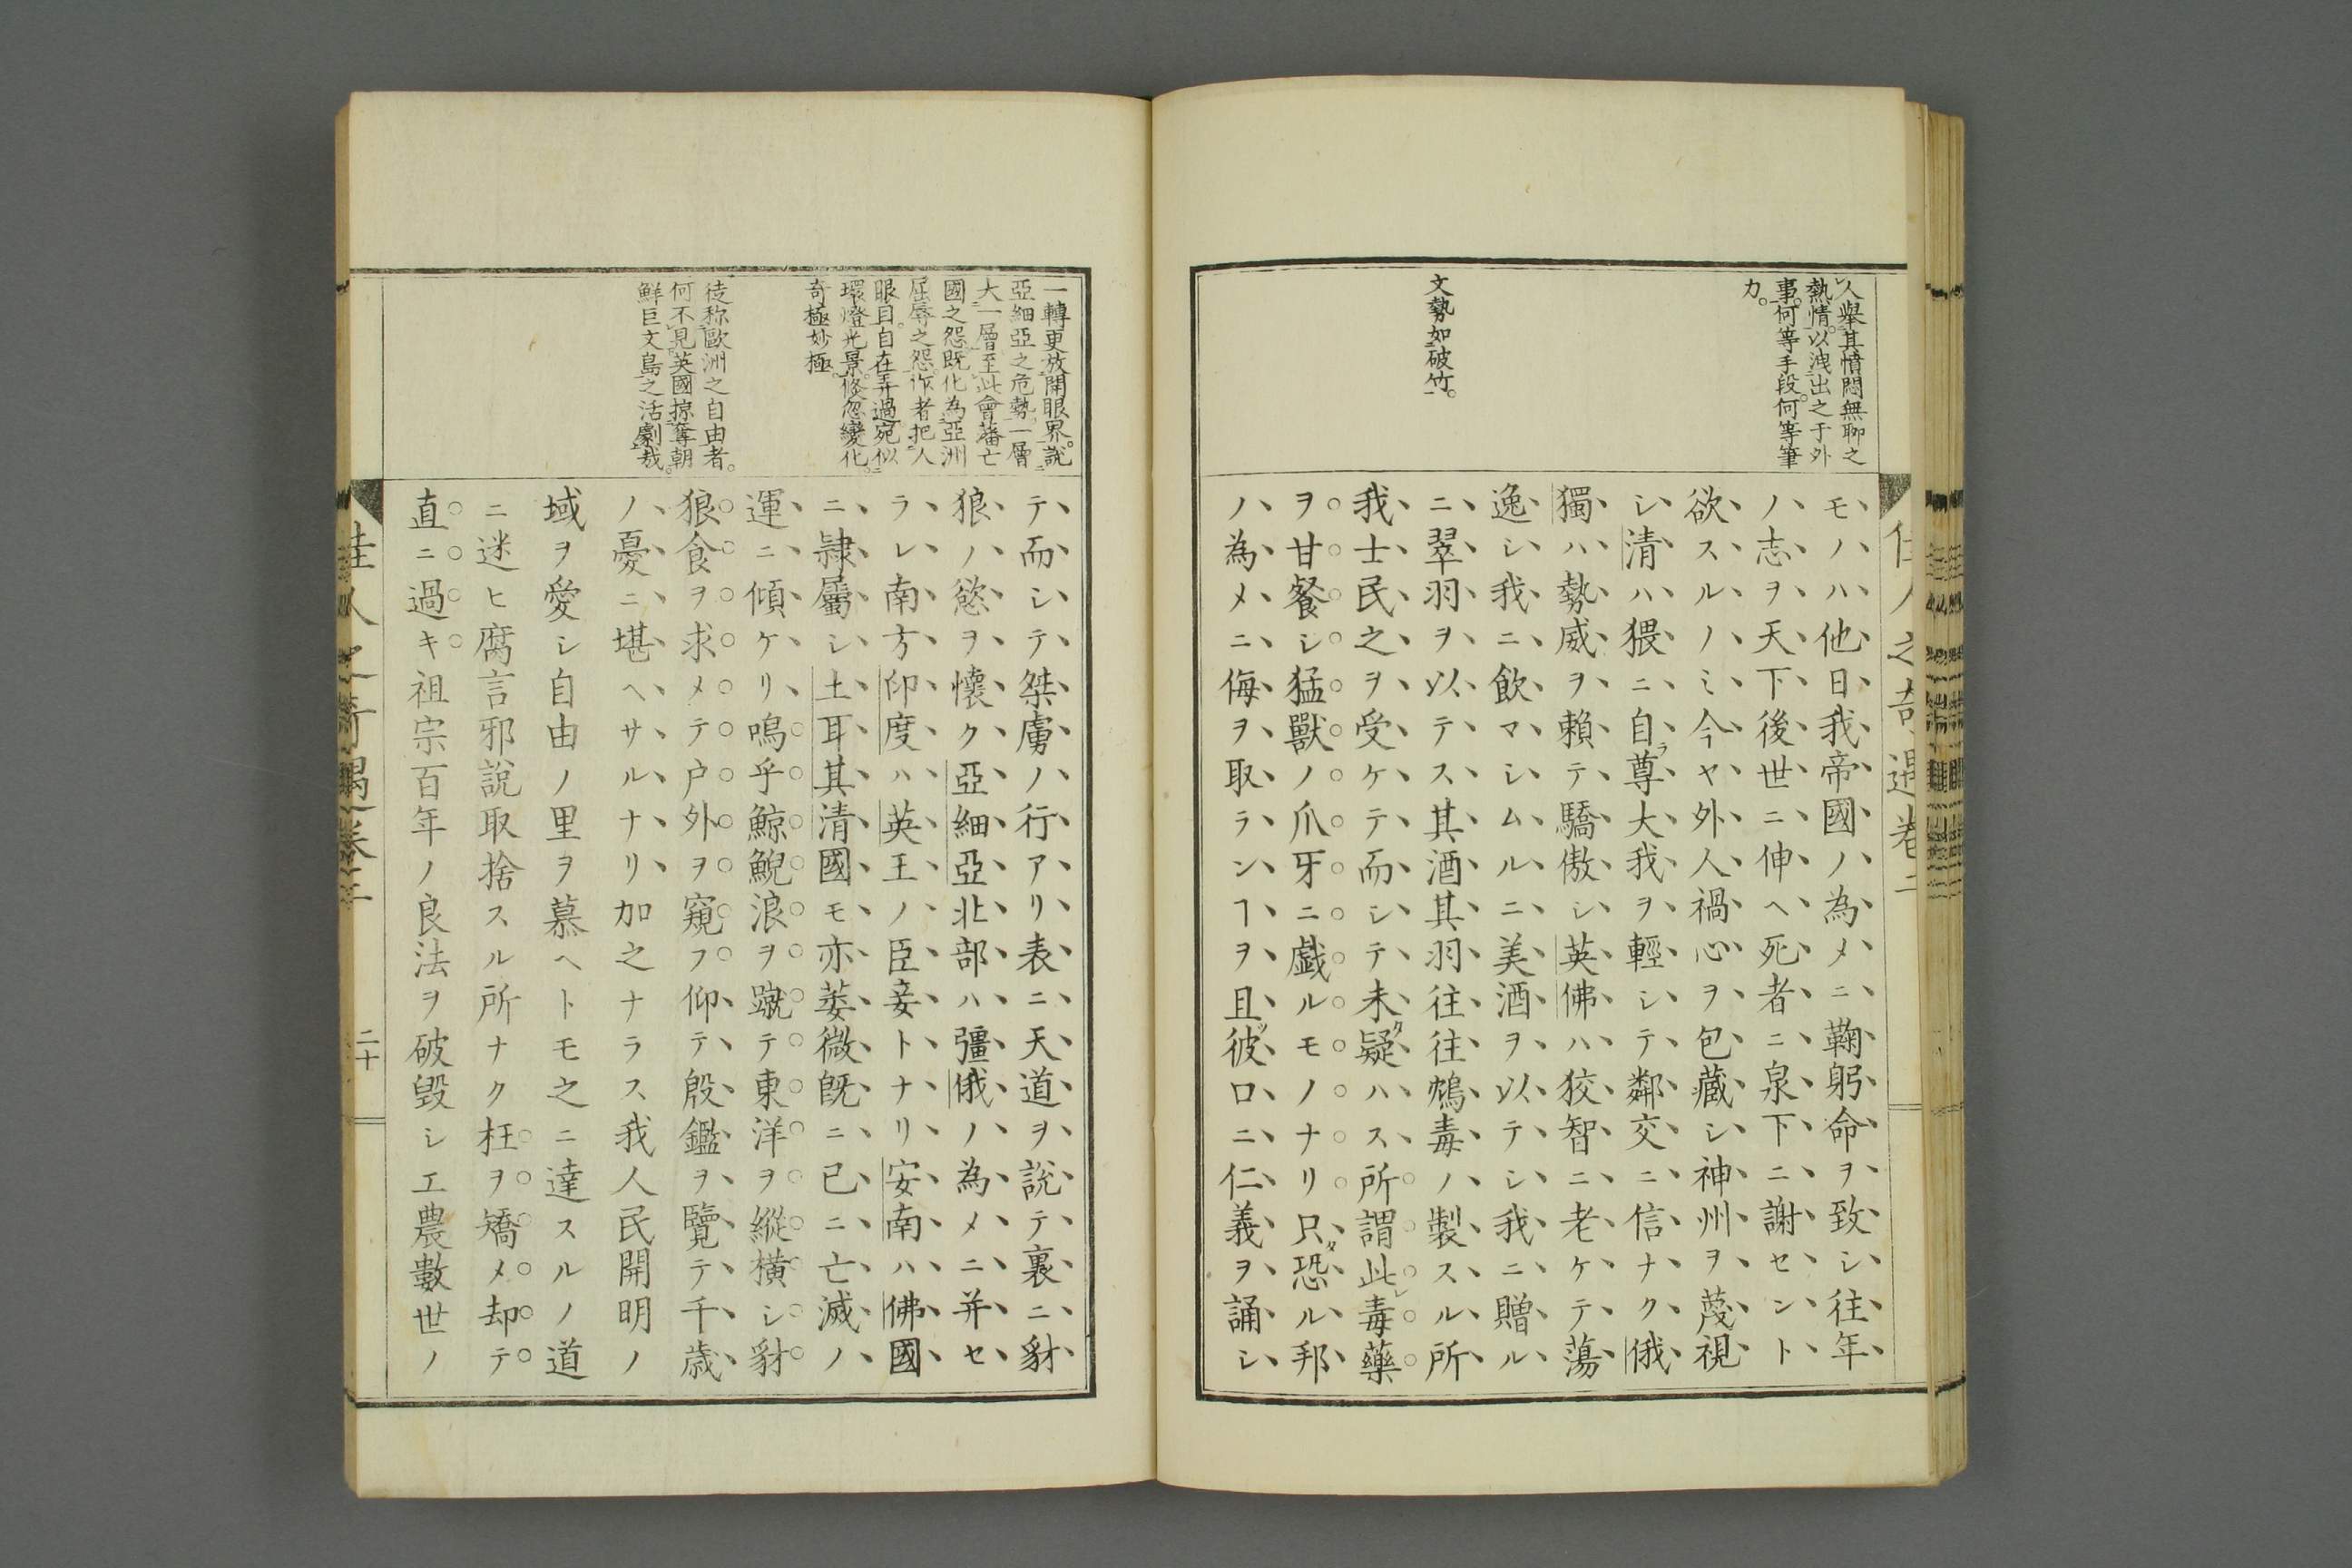 人擧其憤悶無聊之
熱情。以洩出之于外
事。何等手段。何等筆
力。
文勢如破竹。
モノハ他日我帝國ノ為メニ鞠躬命ヲ致シ往年
ノ志ヲ天下後世ニ伸ヘ死者ニ泉下ニ謝セント
欲スルノミ今ヤ外人禍心ヲ包藏シ神州ヲ蔑視
シ清ハ猥ニ自ラ尊大我ヲ輕シテ鄰交ニ信ナク俄
獨ハ勢威ヲ賴テ驕傲シ英佛ハ狡智ニ老ケテ蕩
逸シ我ニ飲マシムルニ美酒ヲ以テシ我ニ贈ル
ニ翠羽ヲ以テス其酒其羽往往鴆毒ノ製スル所
我士民之ヲ受ケテ而シテ未タ疑ハス所謂此レ毒藥
ヲ甘餐シ猛獸ノ爪牙ニ戯ルモノナリ只タ恐ル邦
ノ為メニ侮ヲ取ランヿヲ且ツ彼口ニ仁義ヲ誦シ
佳人之奇遇卷二
一轉更放開眼界。說
亞細亞之危勢。一層
大一層至此會藩亡
國之怨。既化為亞洲
屈辱之怨。作者把人
眼目。自在弄過宛似
環燈光景。倏忽變化。
奇極妙極。
徒稱歐洲之自由者。
何不見英國掠奪朝
鮮巨文島之活劇哉。
テ而シテ桀虜ノ行アリ表ニ天道ヲ說テ裏ニ豺
狼ノ慾ヲ懷ク亞細亞北部ハ彊俄ノ為メニ并セ
ラレ南方印度ハ英王ノ臣妾トナリ安南ハ佛國
ニ隷屬シ土耳其清國モ亦萎微旣ニ已ニ亡滅ノ
運ニ傾ケリ嗚乎鯨鯢浪ヲ蹴テ東洋ヲ縱橫シ豺
狼食ヲ求メテ户外ヲ窺フ仰テ殷鑑ヲ覽テ千歳
ノ憂ニ堪ヘサルナリ加之ナラス我人民開明ノ
域ヲ愛シ自由ノ里ヲ慕ヘトモ之ニ達スルノ道
ニ迷ヒ腐言邪說取捨スル所ナク枉ヲ矯メ却テ
直ニ過キ祖宗百年ノ良法ヲ破毀シ工農數世ノ
佳人之奇遇卷二
二十